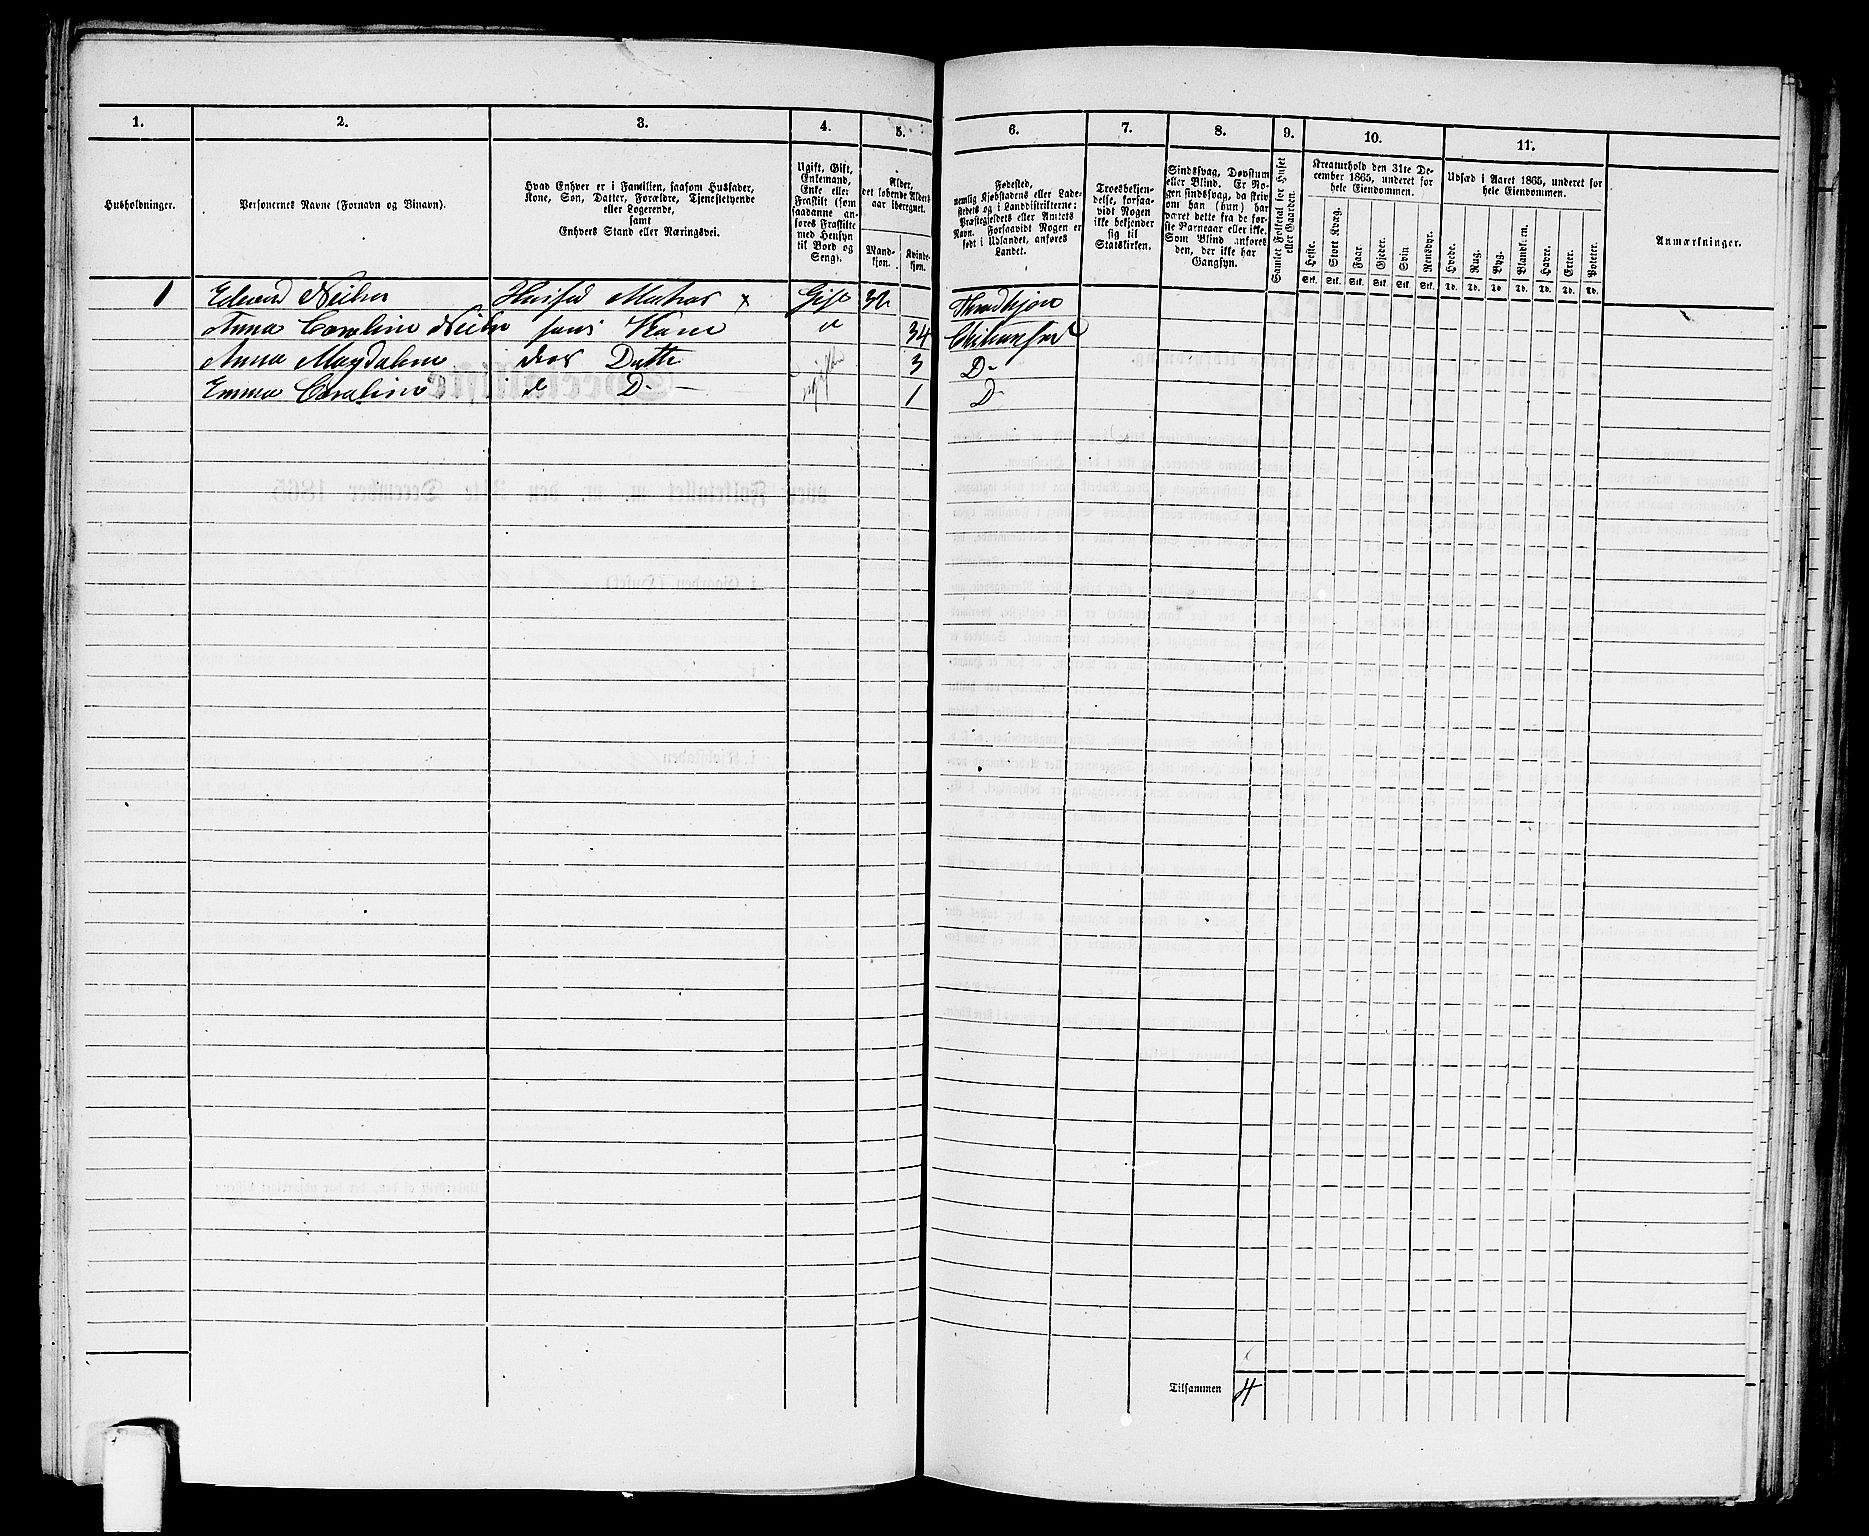 1. 2. 3. 4. 5. 6. 7. 8. 9. 10. 11.
Husholdninger.
Personernes Navne (Fornavn og Tilnavn).
Hvad Enhver er i Familien, saasom Husfader,
Kone, Søn, Datter, Forældre, Tjenestetyende
eller Logerende,
samt
Enhvers Stand eller Næringsvei.
Ugift, Gift,
Enkemand,
Enke eller
Fraskilt (som
saadanne an-
føres Fraskilte
med Hensyn
til Bord og
Seng).
Alder,
det løbende Alders-
aar iberegnet.
Mand-
kjøn.
Kvinde-
kjøn.
Fødested,
nemlig Kjøbstadens eller Lade-
stedets og i Landdistrikterne:
Præstegjeldets eller Amtets
Navn. Forsaavidt Nogen er
født i Udlandet, anføres
Landet.
Troesbekjen-
delse, forsaa-
vidt Nogen
ikke bekjender
sig til
Statskirken.
Sindssvag, Døvstum
eller Blind. Er No-
gen sindssvag, da skriv
om han (hun) har
været dette fra de for-
ste Barneaar eller ikke.
Som Blind anføres
den, der ikke har
Gangsyn.
Samlet Folketal for Huset
eller Gaarden.
Kreaturhold den 31te De-
cember 1865, underet for
hele Eiendommen.
Heste. Stort Kvæg. Faar. Gjeder. Svin Rensdyr.
Stk. Stk. Stk. Stk. Stk. Stk.
Udsæd i Aaret 1865, underet for
hele Eiendommen.
Hvede. Rug. Byg. Blandk.rn. Havre. Erter. Poteter.
Td. Td. Td Td. Td. Td. Td.
Anmærkninger.
1 Edvard Gift 32 Throndhjem
Anna Caroline hans Kone " 34 Christiansund
Anna Magdalene deres Datter ugifte 3 D-
Emma Caroline d D- 1 D-
Tilsammen 4